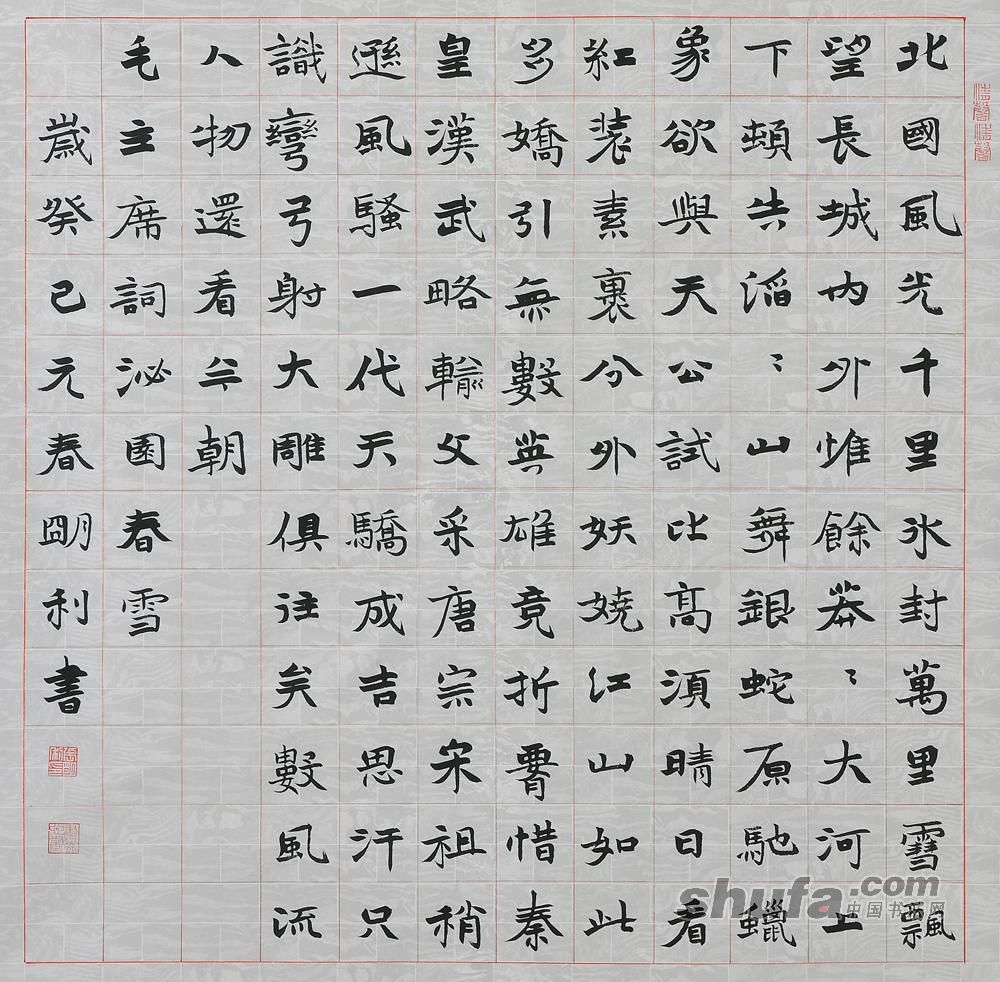 北國風光千里氷封萬里雪飄
望長城内外惟餘莽〻大河上
下頓失滔〻山舞銀蛇原馳蠟
象欲與天公試比高須晴日看
紅裝素裹分外妖嬈江山如此
多嬌引無數英雄竞折腰惜秦
皇漢武略輸文采唐宗宋祖稍
遜風騷一代天驕成吉思汗只
識彎弓射大雕俱往矣數風流
人物還看今朝
毛主席詞沁園春雪
歲癸巳元春朙利書
shufa.com
中国书法网